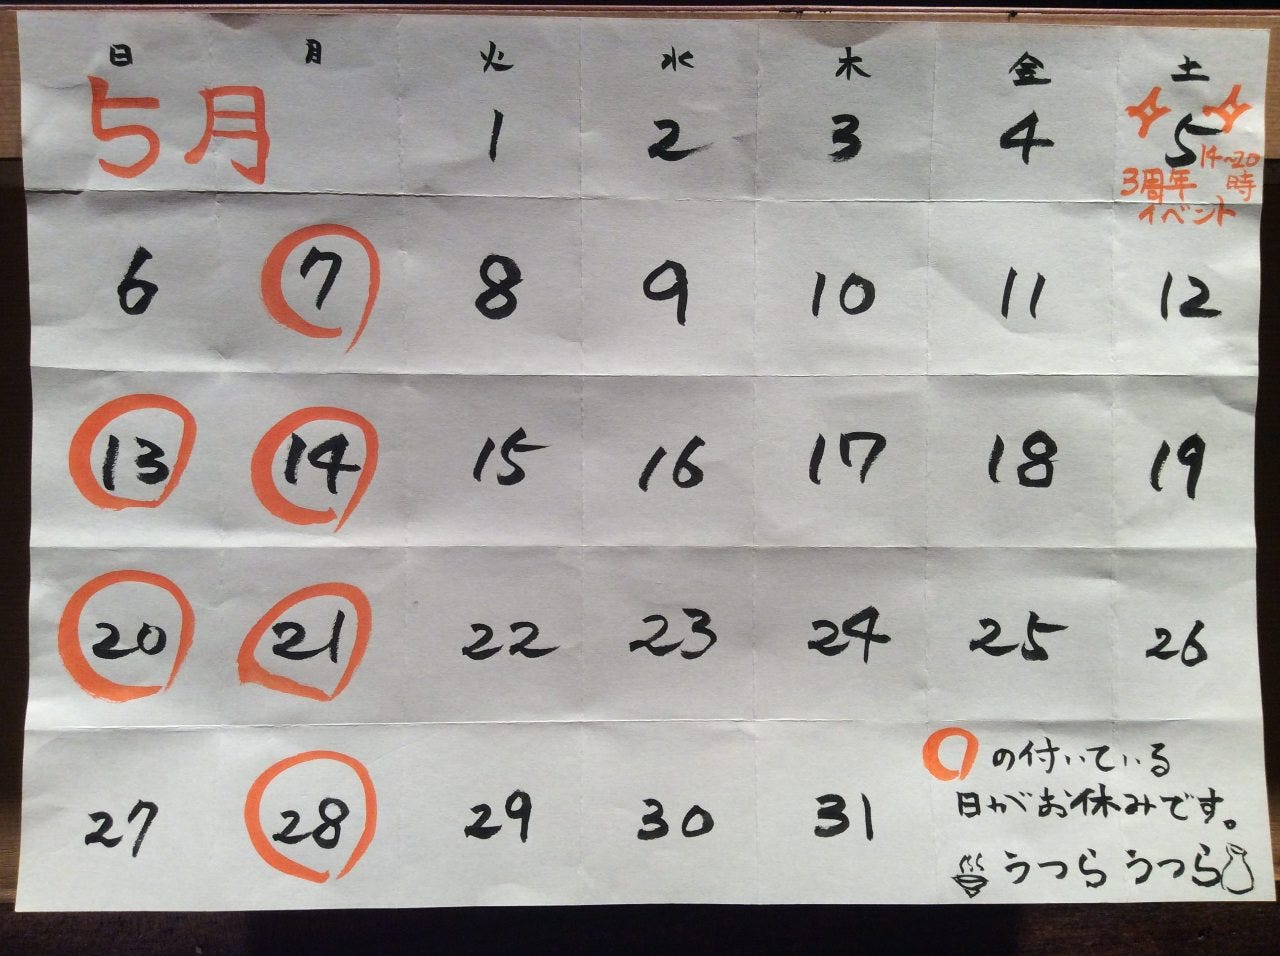 日 月 火 水 木 金 土
5月 1 2 3 4 5
14〜20時
3周年
イベント
6 7 8 9 10 11 12
13 14 15 16 17 18 19
20 21 22 23 24 25 26
27 28 29 30 31
の付いている
日がお休みです。
うつらうつら